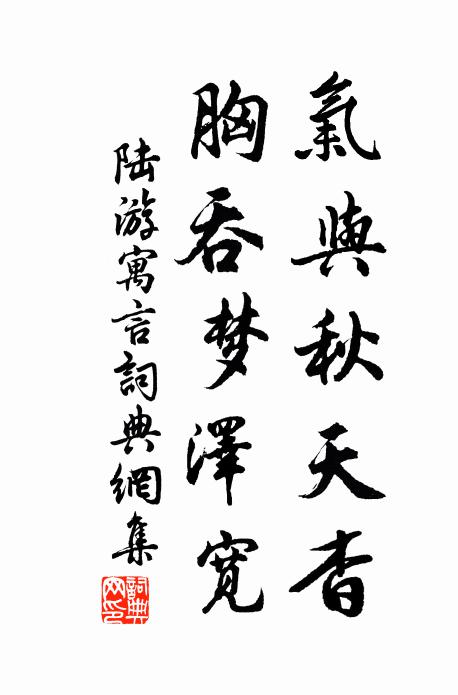 氣與秋天杳
胸吞梦澤寬
陆游寓言詞典網集
詞典网印